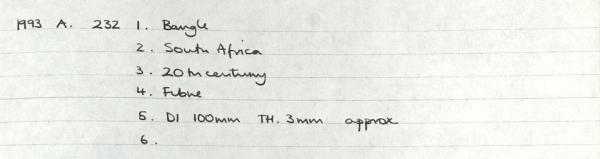 1993 A. 232 1. Bangle
2. South Africa
3. 20th century
4. Fibre
5. DI 100mm TH. 3mm approx
6.